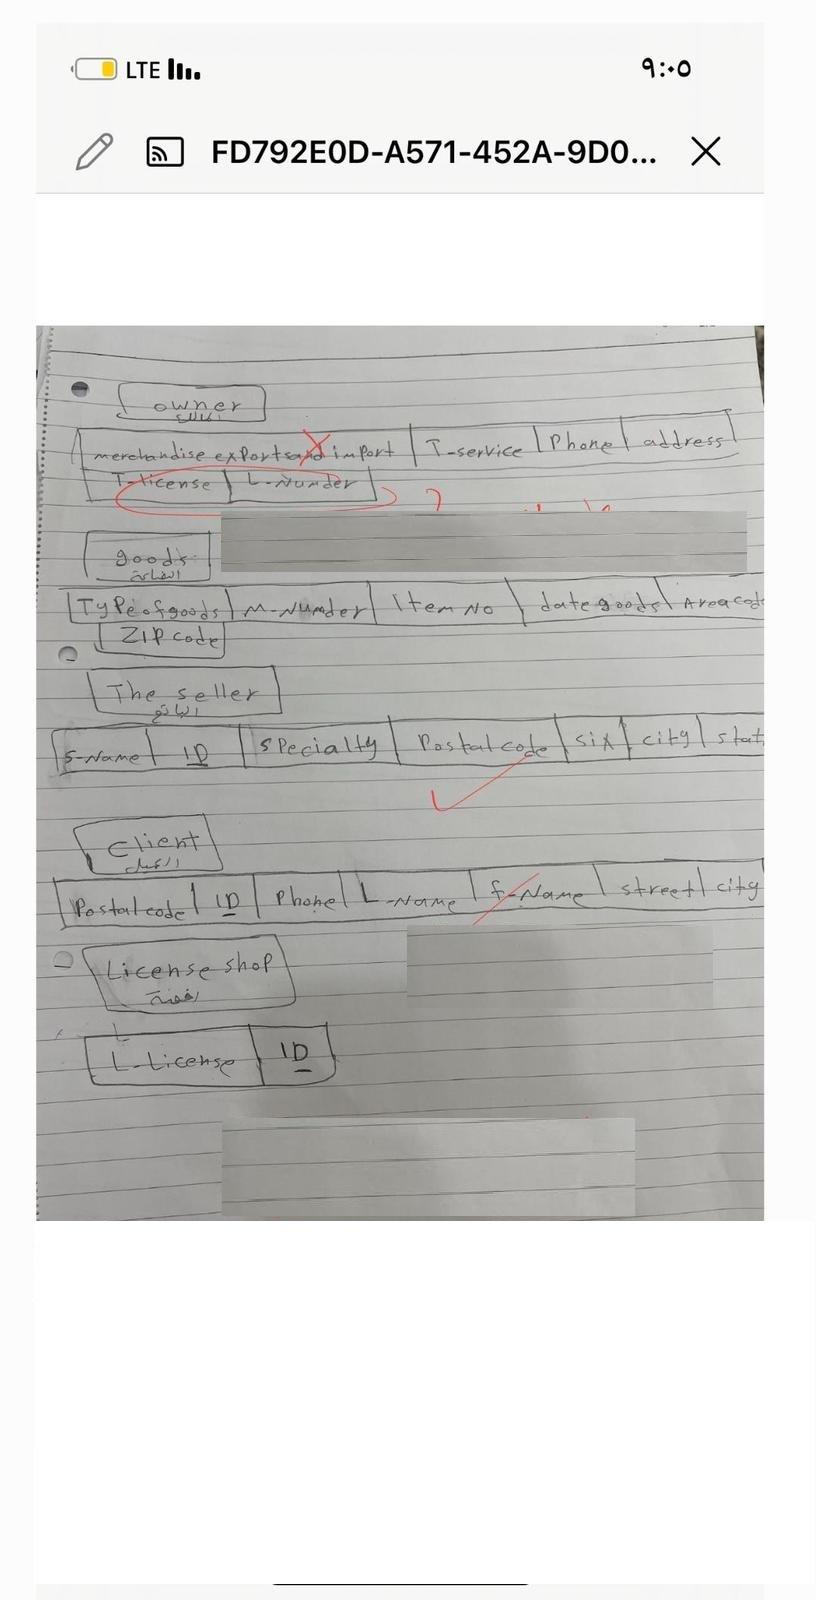 LTE ٩:٠٥
FD792E0D-A571-452A-9D0...
owner
المالك
merchandise exports and import | T-service | Phone | address
T-license | L-Number
?
goods
البضاعة
Type of goods | M-Number | Item No | date goods | Area cod
ZIP code
The seller
البائع
S-Name | ID | specialty | Postal code | six | city | stat
Client
العميل
Postal code | ID | Phone | L-Name | f-Name | street | city
License shop
L-License | ID